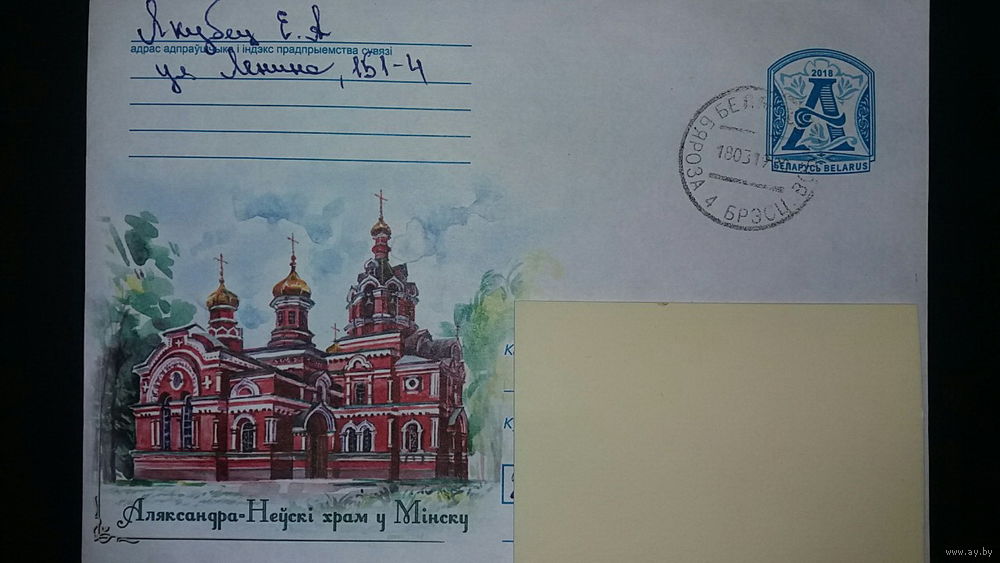 Якубец Е. А
адрас адпраўшчыка і індэкс прадпрыемства сувязі
ул Ленина, 151-4
2018
А
БЕЛАРУСЬ BELARUS
БЯРОЗА 4 БРЭСЦ.
180319
Аляксандра-Неўскі храм у Мінску
www.ay.by